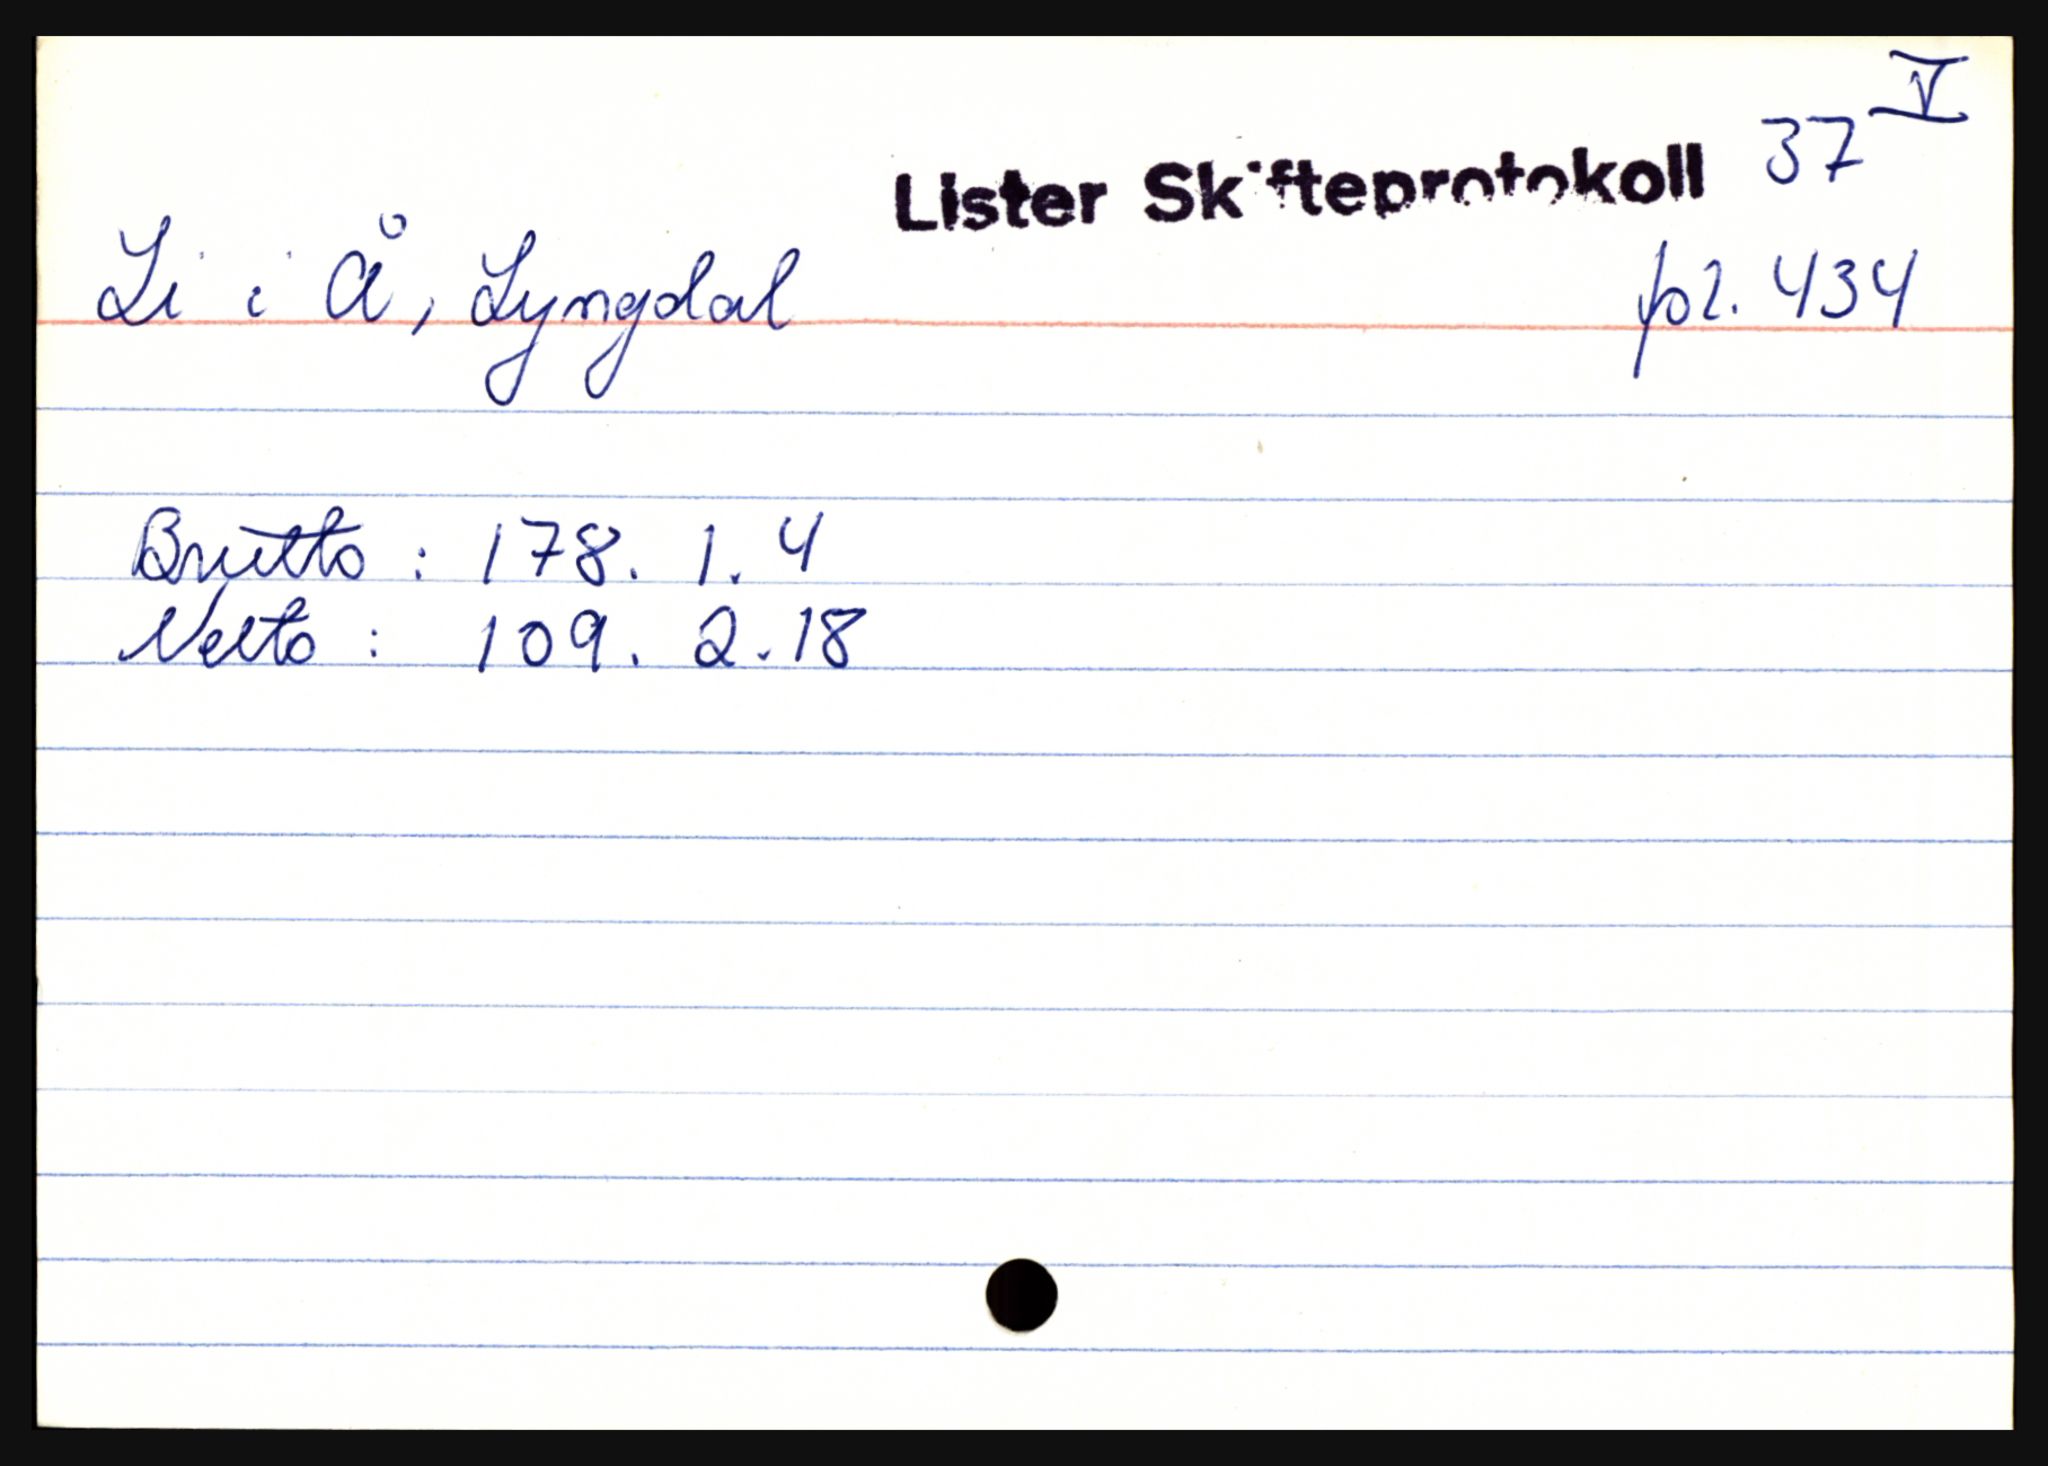 V
Lister Skifteprotokoll 37
Li i Å, Lyngdal fol. 434
Brutto : 178. 1. 4
Netto : 109. 2. 18